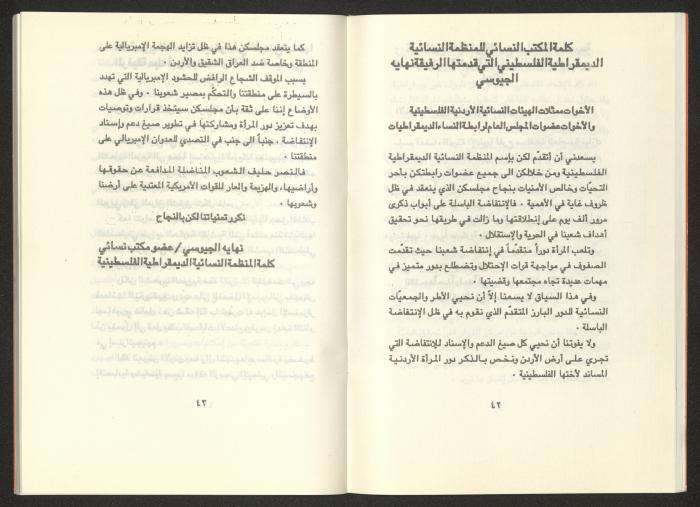 كلمة المكتب النسائي للمنظمة النسائية
الديمقراطية الفلسطيني التي قدمتها الرفيقة نهايه
الجيوسي
الأخوات ممثلات الهيئات النسائية الأردنية الفلسطينية
والأخوات عضوات المجلس العام لرابطة النساء الديمقراطيات
يسعدني أن أتقدّم لكن بإسم المنظمة النسائية الديمقراطية
الفلسطينية ومن خلالكن الى جميع عضوات رابطتكن بأحر
التحيّات وخالص الأمنيات بنجاح مجلسكن الذي ينعقد في ظل
ظروف غاية في الأهمية . فالإنتفاضة الباسلة على أبواب ذكرى
مرور ألف يوم على إنطلاقتها وما زالت في طريقها نحو تحقيق
أهداف شعبنا في الحرية والإستقلال .
وتلعب المرأة دوراً متقدّماً في إنتفاضة شعبنا حيث تقدّمت
الصفوف في مواجهة قوات الإحتلال وتضطلع بدور متميز في
مهمات عديدة تجاه مجتمعها وقضيتها .
وفي هذا السياق لا يسعنا إلاّ أن نحيي الأطر والجمعيّات
النسائية للدور البارز المتقدّم الذي تقوم به في ظل الإنتفاضة
الباسلة .
ولا يفوتنا أن نحيي كل صيغ الدعم والإسناد للإنتفاضة التي
تجري على أرض الأردن ونخص بالذكر دور المرأة الأردنية
المساند لأختها الفلسطينية .
٤٢
كما ينعقد مجلسكن هذا في ظل تزايد الهجمة الإمبريالية على
المنطقة وخاصة ضد العراق الشقيق والأردن .
بسبب الموقف الشجاع الرافض للحشود الإمبريالية التي تهدد
بالسيطرة على منطقتنا والتحكّم بمصير شعوبنا . وفي ظل هذه
الأوضاع إننا على ثقة بأن مجلسكن سيتخذ قرارات وتوصيات
بهدف تعزيز دور المرأة ومشاركتها في تطوير صيغ دعم وإسناد
الإنتفاضة . جنباً الى جنب في التصدي للعدوان الإمبريالي على
منطقتنا .
فالنصر حليف الشعوب المناضلة المدافعة عن حقوقها
وأراضيها، والهزيمة والعار للقوات الأمريكية المعتدية على أرضنا
وشعوبها .
نكرر تمنياتنا لكن بالنجاح
نهايه الجيوسي / عضو مكتب نسائي
كلمة المنظمة النسائية الديمقراطية الفلسطينية
٤٣